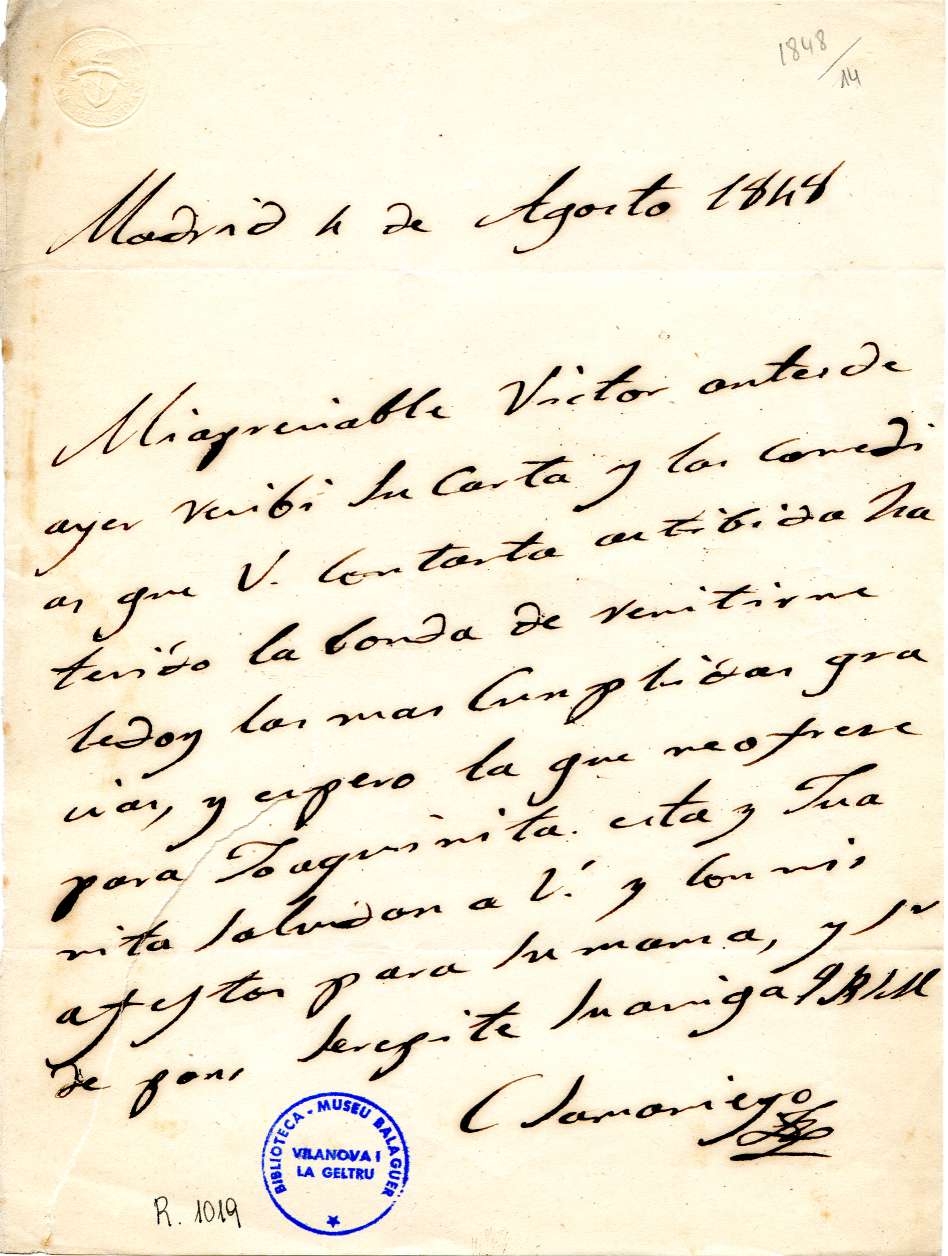 1848/14
Madrid 4 de Agosto 1848
Mi apreciable Victor antes de
ayer recibi su Carta y las comedi
as que V. con tanta actibida ha
tenido la bonda de remitirme
le doy las mas Cumplidas gra
cias, y espero la que me ofrese
para Joaquinita. esta y Jua
nita Saludan a V. y con mis
afectos para su mama, y Sr
de pons se repite su amiga QBSM
C Samariego
BIBLIOTECA - MUSEU BALAGUER
VILANOVA I
LA GELTRU
R. 1019